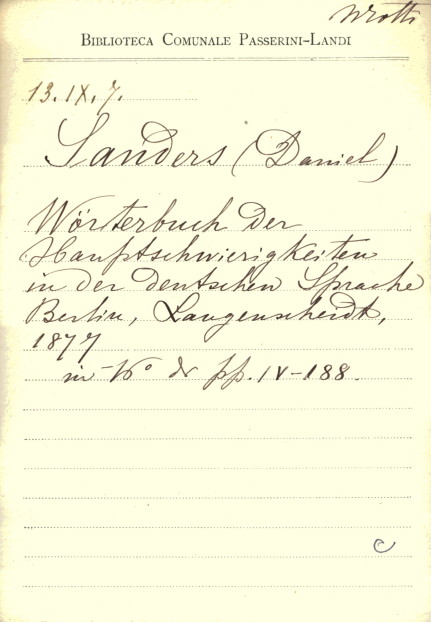 BIBLIOTECA COMUNALE PASSERINI-LANDI
13. IX. 7.
Sanders (Daniel)
Wörterbuch der
Hauptschwierigkeiten
in der deutschen Sprache
Berlin, Langenscheidt,
1877
in di pp. IV-188.
C